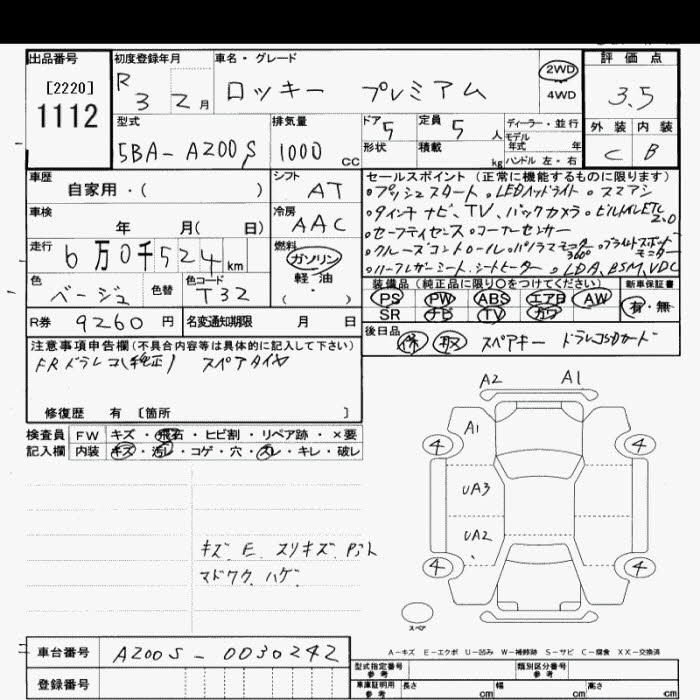 出品番号 初度登録年月 車名・グレード 評価点
[2220] R 3 2月 ロッキー プレミアム 2WD 3.5
1112 4WD
型式 排気量 ドア 5 定員 5人 ディーラー・並行 外装 内装
モデル
5BA-A200S 1000cc 形状 積載 kg 年式 年 C B
ハンドル 左・右
車歴 シフト セールスポイント(正常に機能するものに限ります)
自家用・( ) AT ・プッシュスタート ・LEDヘッドライト ・スマアシ
車検 冷房 ・9インチ ナビ、TV、バックカメラ ・ビルトインETC2.0
年 月( 日) AAC ・コーナーセンサー
走行 燃料 ・クルーズコントロール ・パノラマモニター 360° ・ブラインドスポットモニター
6万0千524km ガソリン ・シートヒーター ・LDA、BSM、VDC
軽・油
色 色替 色コード ( ) 装備品(純正品に限り○をつけてください) 新車保証書
ベージュ T32 PS PW ABS エアB AW 有・無
SR ナビ TV カワ
R券 9260円 名変通知期限 月 日 後日品
保 取 スペアキー ドラレコSDカード
注意事項申告欄(不具合内容等は具体的に記入して下さい)
FRドラレコ(純正) スペアタイヤ
修復歴 有 [箇所 ]
検査員 FW キズ・飛石・ヒビ割・リペア跡・×要
記入欄 内装 キズ・汚レ・コゲ・穴・スレ・キレ・破レ
A2 A1
A1
4 4
UA3
UA2
4 4
キズ E スリキズ
マドワク ハゲ
スペア
A-キズ E-エクボ U-凹み W-補修跡 S-サビ C-腐食 XX-交換済
車台番号 A200S-0030242
登録番号
型式指定番号 参考 類別区分番号 参考
車庫証明用 参考 長さ cm 幅 cm 高さ cm